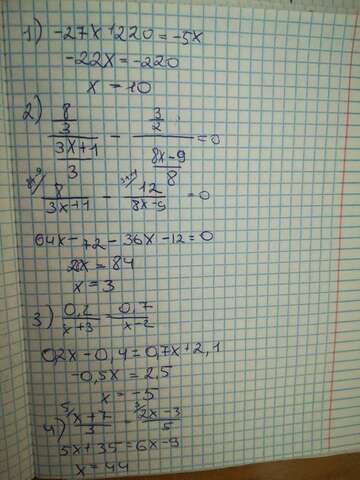 1) -27x+220=-5x
-22x=-220
x=10
2) 8/3 / (3x+1)/3 - 3/2 / (8x-9)/8 =0
8x-9/ 8/(3x+1) - 3x+1/ 12/(8x-9) =0
64x-72-36x-12=0
28x=84
x=3
3) 0,2/(x+3) = 0,7/(x-2)
0,2x-0,4=0,7x+2,1
-0,5x=2,5
x=-5
4) 5/ (x+7)/3 = 3/ (2x-3)/5
5x+35=6x-9
x=44